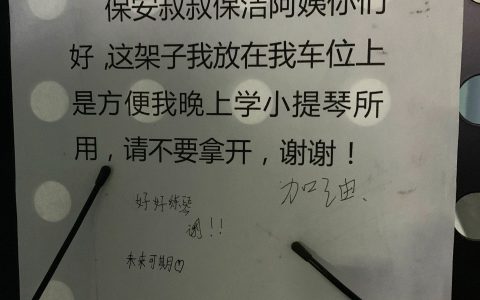 保安叔叔保洁阿姨你们
好,这架子我放在我车位上
是方便我晚上学小提琴所
用，请不要拿开，谢谢！
加油
好好练琴
!!
未来可期♡